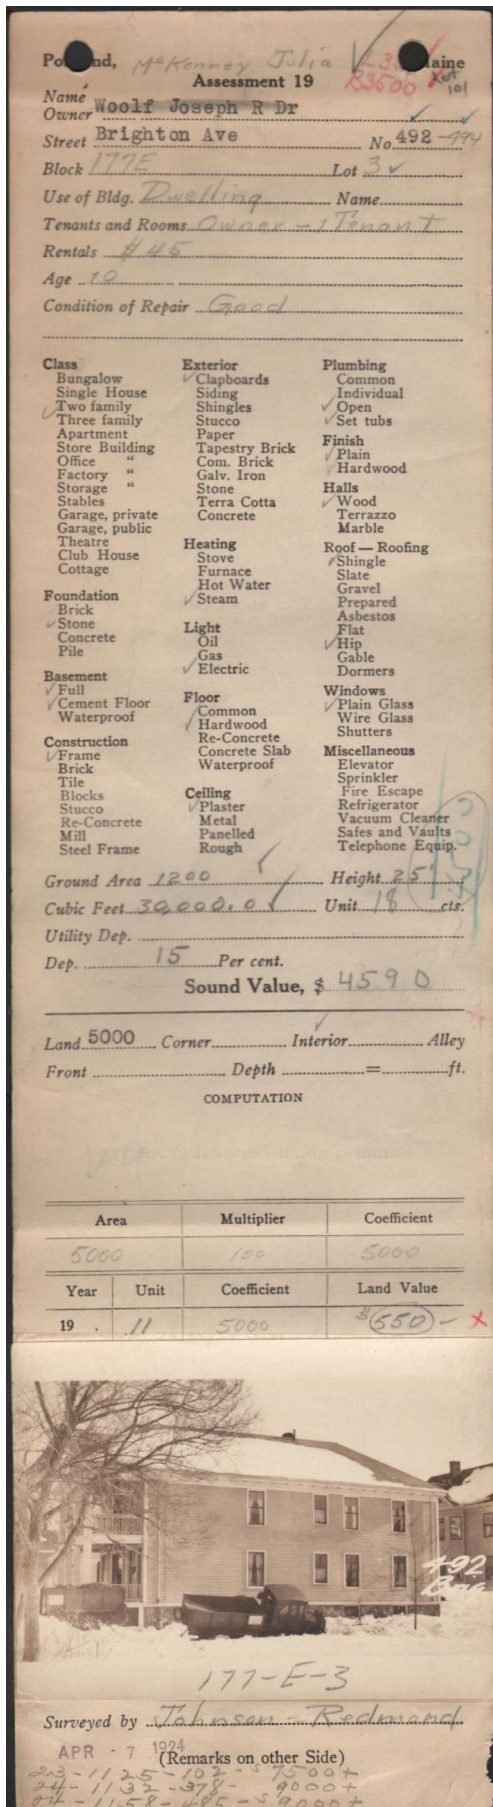 McKenney Julia
Po nd, aine
B3500
101
Assessment 19
Name
Owner Woolf Joseph R Dr
Street Brighton Ave No 492-494
Block 177E Lot 3
Use of Bldg. Dwelling Name
Tenants and Rooms Owner - 1 Tenant
Rentals $45
Age 10
Condition of Repair Good
Class
Bungalow
Single House
Two family
Three family
Apartment
Store Building
Office "
Factory "
Storage "
Stables
Garage, private
Garage, public
Theatre
Club House
Cottage
Foundation
Brick
Stone
Concrete
Pile
Basement
Full
Cement Floor
Waterproof
Construction
Frame
Brick
Tile
Blocks
Stucco
Re-Concrete
Mill
Steel Frame
Exterior
Clapboards
Siding
Shingles
Stucco
Paper
Tapestry Brick
Com. Brick
Galv. Iron
Stone
Terra Cotta
Concrete
Heating
Stove
Furnace
Hot Water
Steam
Light
Oil
Gas
Electric
Floor
Common
Hardwood
Re-Concrete
Concrete Slab
Waterproof
Ceiling
Plaster
Metal
Panelled
Rough
Plumbing
Common
Individual
Open
Set tubs
Finish
Plain
Hardwood
Halls
Wood
Terrazzo
Marble
Roof — Roofing
Shingle
Slate
Gravel
Prepared
Asbestos
Flat
Hip
Gable
Dormers
Windows
Plain Glass
Wire Glass
Shutters
Miscellaneous
Elevator
Sprinkler
Fire Escape
Refrigerator
Vacuum Cleaner
Safes and Vaults
Telephone Equip.
Ground Area 1200 Height 25'
Cubic Feet 30,000.0 Unit 18 cts.
Utility Dep.
Dep. 15 Per cent.
Sound Value, $ 4590
Land 5000 Corner Interior Alley
Front Depth = ft.
COMPUTATION
Area Multiplier Coefficient
5000 100 5000
Year Unit Coefficient Land Value
19 . 11 5000 $550 - x
492
177-E-3
Surveyed by Johnson - Redmond
APR - 7 1924
(Remarks on other Side)
23-1125-102-$7500+
24-1132-378- 9000+
24-1158-485-$9000+